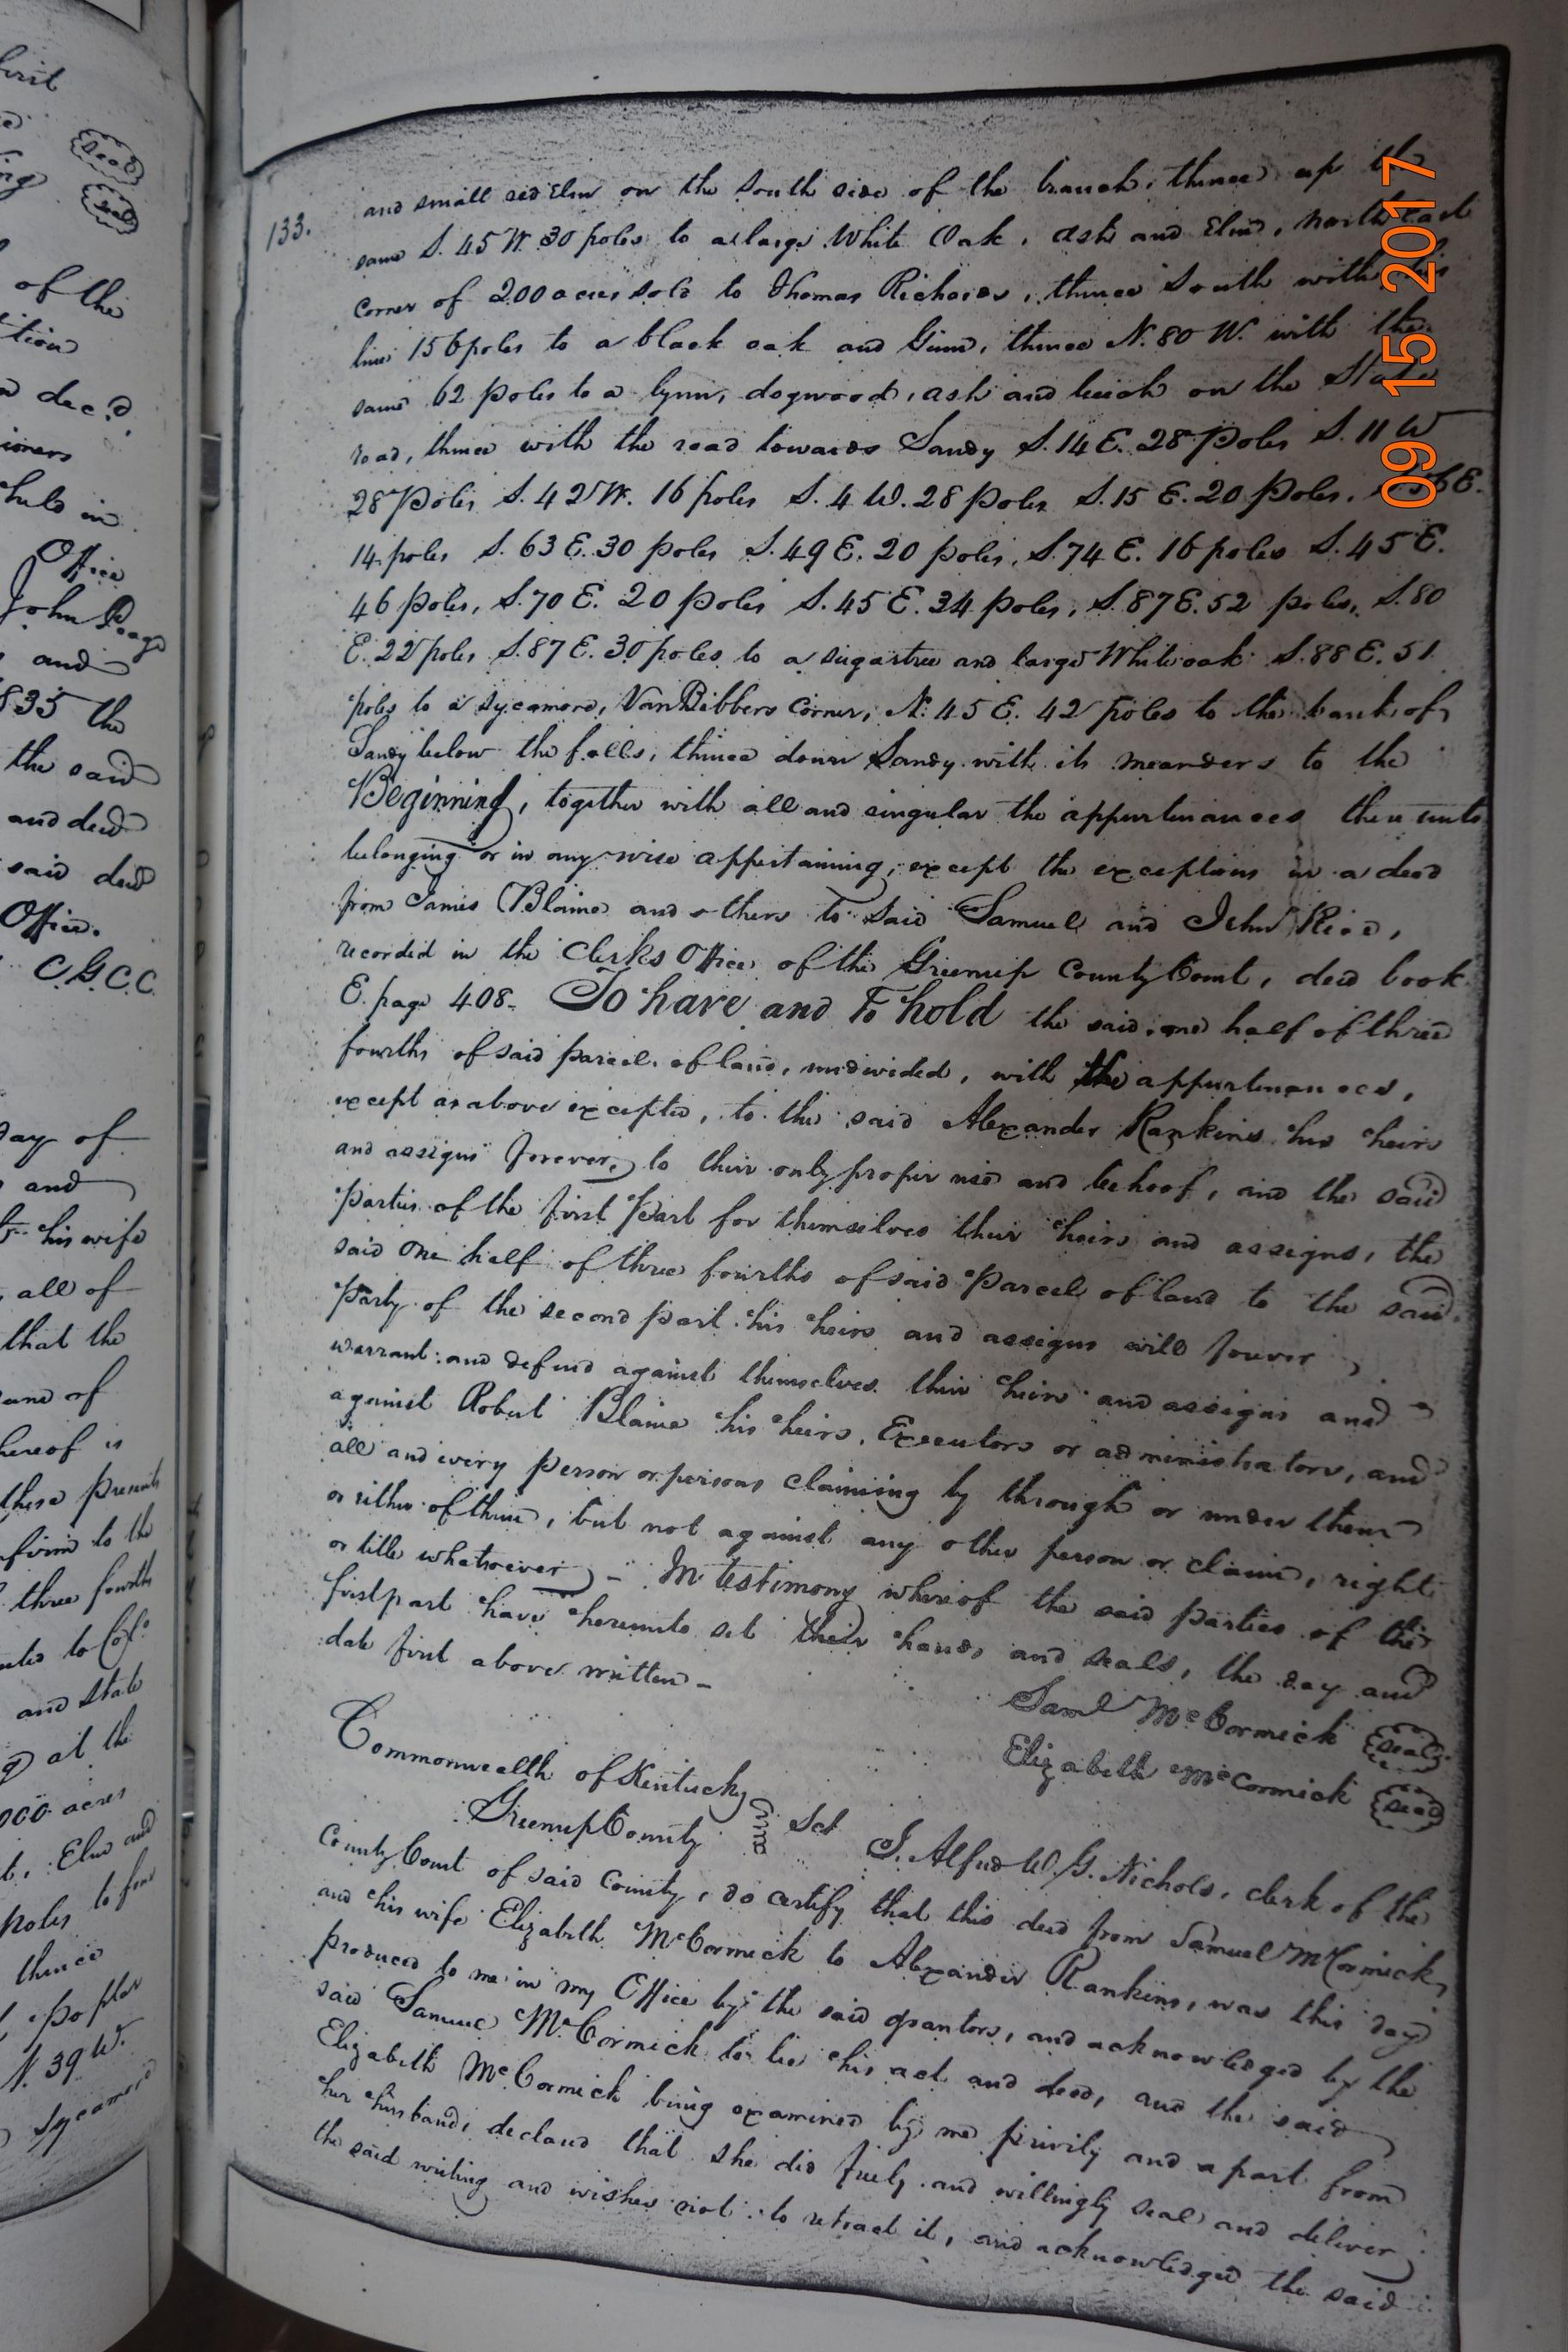 first
seal
seal
of the
dec.d
in
Office
John Poage
and
1835 the
the said
and deed
said deed
Office.
C.G.C.C.
day of
and
his wife
all of
that the
and of
hereof is
these presents
confirm to the
three fourths
and state
at the
000 acres
Elm and
poles to four
thence
poplar
N. 39 W.
sycamore
133.
and small red Elm on the south side of the branch, thence up the
same S. 45 W. 30 poles to a large White Oak, ash and Elm, North East
corner of 200 acres sold to Thomas Richards, thence South with his
line 156 poles to a black oak and Gum, thence N. 80 W. with the
same 62 poles to a lynn, dogwood, ash and beech on the State
road, thence with the road towards Sandy S. 14 E. 28 Poles S. 11 W
28 Poles S. 42 W. 16 poles S. 4 W. 28 poles S. 15 E. 20 Poles, E.
14 poles S. 63 E. 30 poles S. 49 E. 20 poles, S. 74 E. 16 poles S. 45 E.
46 poles, S. 70 E. 20 poles S. 45 E. 34 poles, S. 87 E. 52 poles, S. 80
E. 22 poles S. 87 E. 30 poles to a sugartree and large White oak S. 88 E. 51
poles to a sycamore, VanBibbers Corner, N. 45 E. 42 poles to the bank of
Sandy below the falls, thence down Sandy with its meanders to the
Beginning, together with all and singular the appurtenances thereunto
belonging or in any wise appertaining, except the exceptions in a deed
from James Blaine and others to said Samuel and John Rice,
recorded in the Clerks Office of the Greenup County Court, deed book
E. page 408- To have and to hold the said one half of three
fourths of said parcel of land, undivided, with the appurtenances,
except as above excepted, to the said Alexander Rankins his heirs
and assigns forever, to their only proper use and behoof, and the said
Parties of the first part for themselves their heirs and assigns, the
said One half of three fourths of said Parcel of land to the said
Party of the second part his heirs and assigns will forever,
warrant and defend against themselves their heirs and assigns and
against Robert Blaine his heirs, Executors or administrators, and
all and every person or persons claiming by through or under them
or either of them, but not against any other person or claim, right
or title whatsoever - In testimony whereof the said parties of the
first part have hereunto set their hands and seals, the day and
date first above written -
Saml McCormick seal
Elizabeth McCormick seal
Commonwealth of Kentucky
Greenup County Sct
I. Alfred W. G. Nichols, clerk of the
County Court of said County, do certify that this deed from Samuel McCormick,
and his wife Elizabeth McCormick to Alexander Rankins, was this day
produced to me in my Office by the said grantors, and acknowledged by the
said Samuel McCormick to be his act and deed, and the said
Elizabeth McCormick being examined by me privily and apart from
her husband, declared that she did freely and willingly seal and deliver
the said writing and wishes not to retract it, and acknowledged the said
09 15 2017